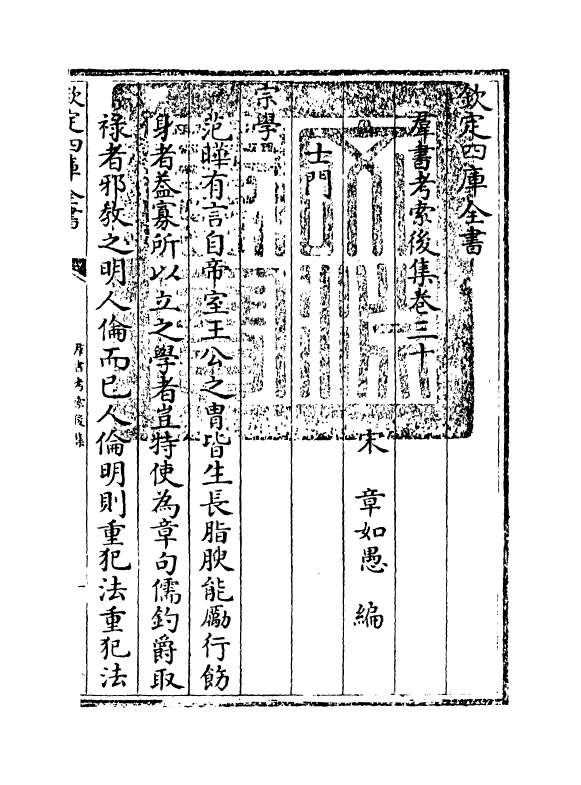 欽定四庫全書
羣書考索後集卷三十
宋 章如愚 編
士門
宗學
范曄有言自帝室王公之胄皆生長脂腴能勵行飭
身者益寡所以立之學者豈特使為章句儒釣爵取
祿者邪教之明人倫而已人倫明則重犯法重犯法
欽定四庫全書
羣書考索後集
一